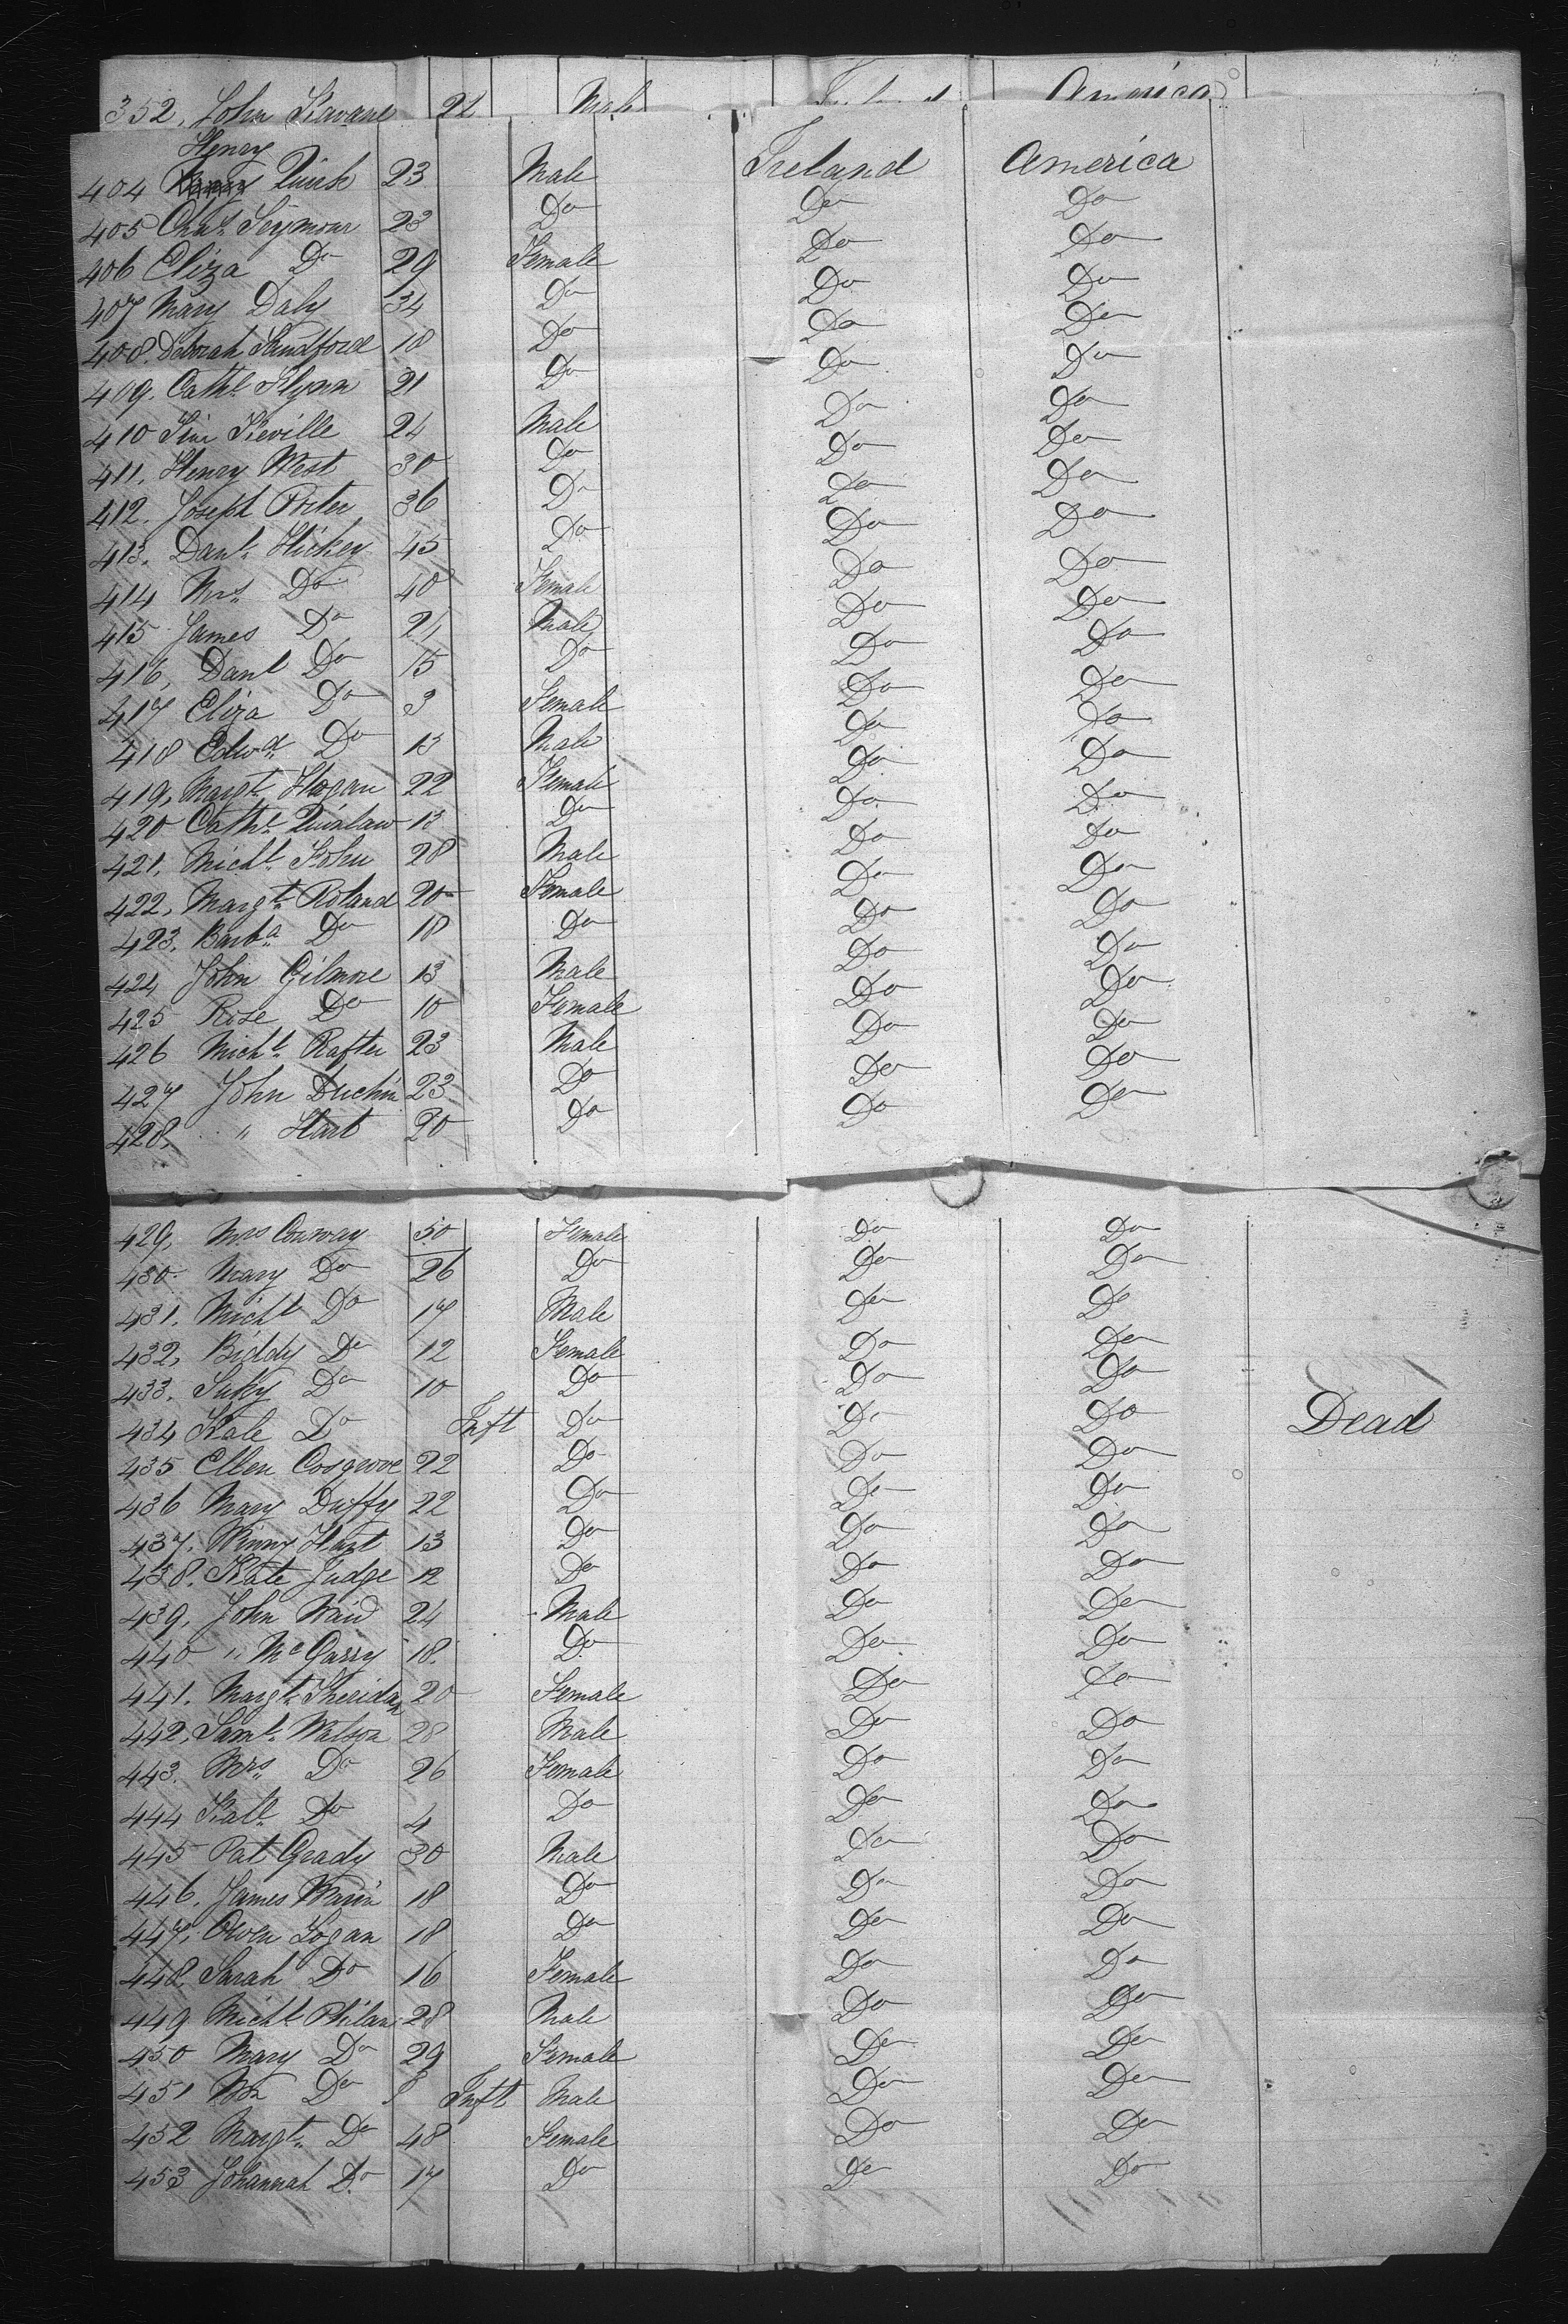 352. John Kavane 24 Male Ireland America
Henry
404 Quirk 23 Male Ireland America
405 Chas. Seymour 23 Do Do Do
406 Eliza Do 29 Female Do Do
407 Mary Daly 34 Do Do Do
408. Deborah Sandford 18 Do Do Do
409. Cathe Flynn 21 Do Do Do
410 Jim Keville 24 Male Do Do
411. Henry West 30 Do Do Do
412. Joseph Porter 36 Do Do Do
413. Danl. Hickey 45 Do Do Do
414 Mrs. Do 40 Female Do Do
415 James Do 21 Male Do Do
416, Danl Do 15 Do Do Do
417 Eliza Do 3 Female Do Do
418 Edwd Do 13 Male Do Do
419, Margt. Hogan 22 Female Do Do
420 Cathe. Quinlaw 13 Do Do Do
421. Michl. John 28 Male Do Do
422, Margt. Roland 20 Female Do Do
423. Barba Do 18 Do Do Do
424 John Gilmore 13 Male Do Do
425 Rose Do 10 Female Do Do
426 Michl. Rafter 23 Male Do Do
427 John 23 Do Do Do
428, " Hart 20 Do Do Do
429, Mrs Conway 50 Female Do Do
430. Mary Do 26 Do Do Do
431. Michl Do 17 Male Do Do
432, Biddy Do 12 Female Do Do
433. Do 10 Do Do Do
434 Kate Do Inft Do Do Do Dead
435 Ellen Cosgrove 22 Do Do Do
436 Mary Duffy 22 Do Do Do
437. Winny Hart 13 Do Do Do
438. Kate Judge 12 Do Do Do
439, John Waid 24 Male Do Do
440 " McGarry 18. Do Do Do
441. Margt. Sheridan 20 Female Do Do
442, Saml. Watson 28 Male Do Do
443. Mrs. Do 26 Female Do Do
444 Kate Do 4 Do Do Do
445 Pat Grady 30 Male Do Do
446. James 18 Do Do Do
447. Owen Logan 18 Do Do Do
448. Sarah Do 16 Female Do Do
449 Michl Philan 28 Male Do Do
450 Mary Do 29 Female Do Do
451 Wm Do Inft Male Do Do
452 Margt. Do 48 Female Do Do
453 Johannah Do. 17 Do Do Do